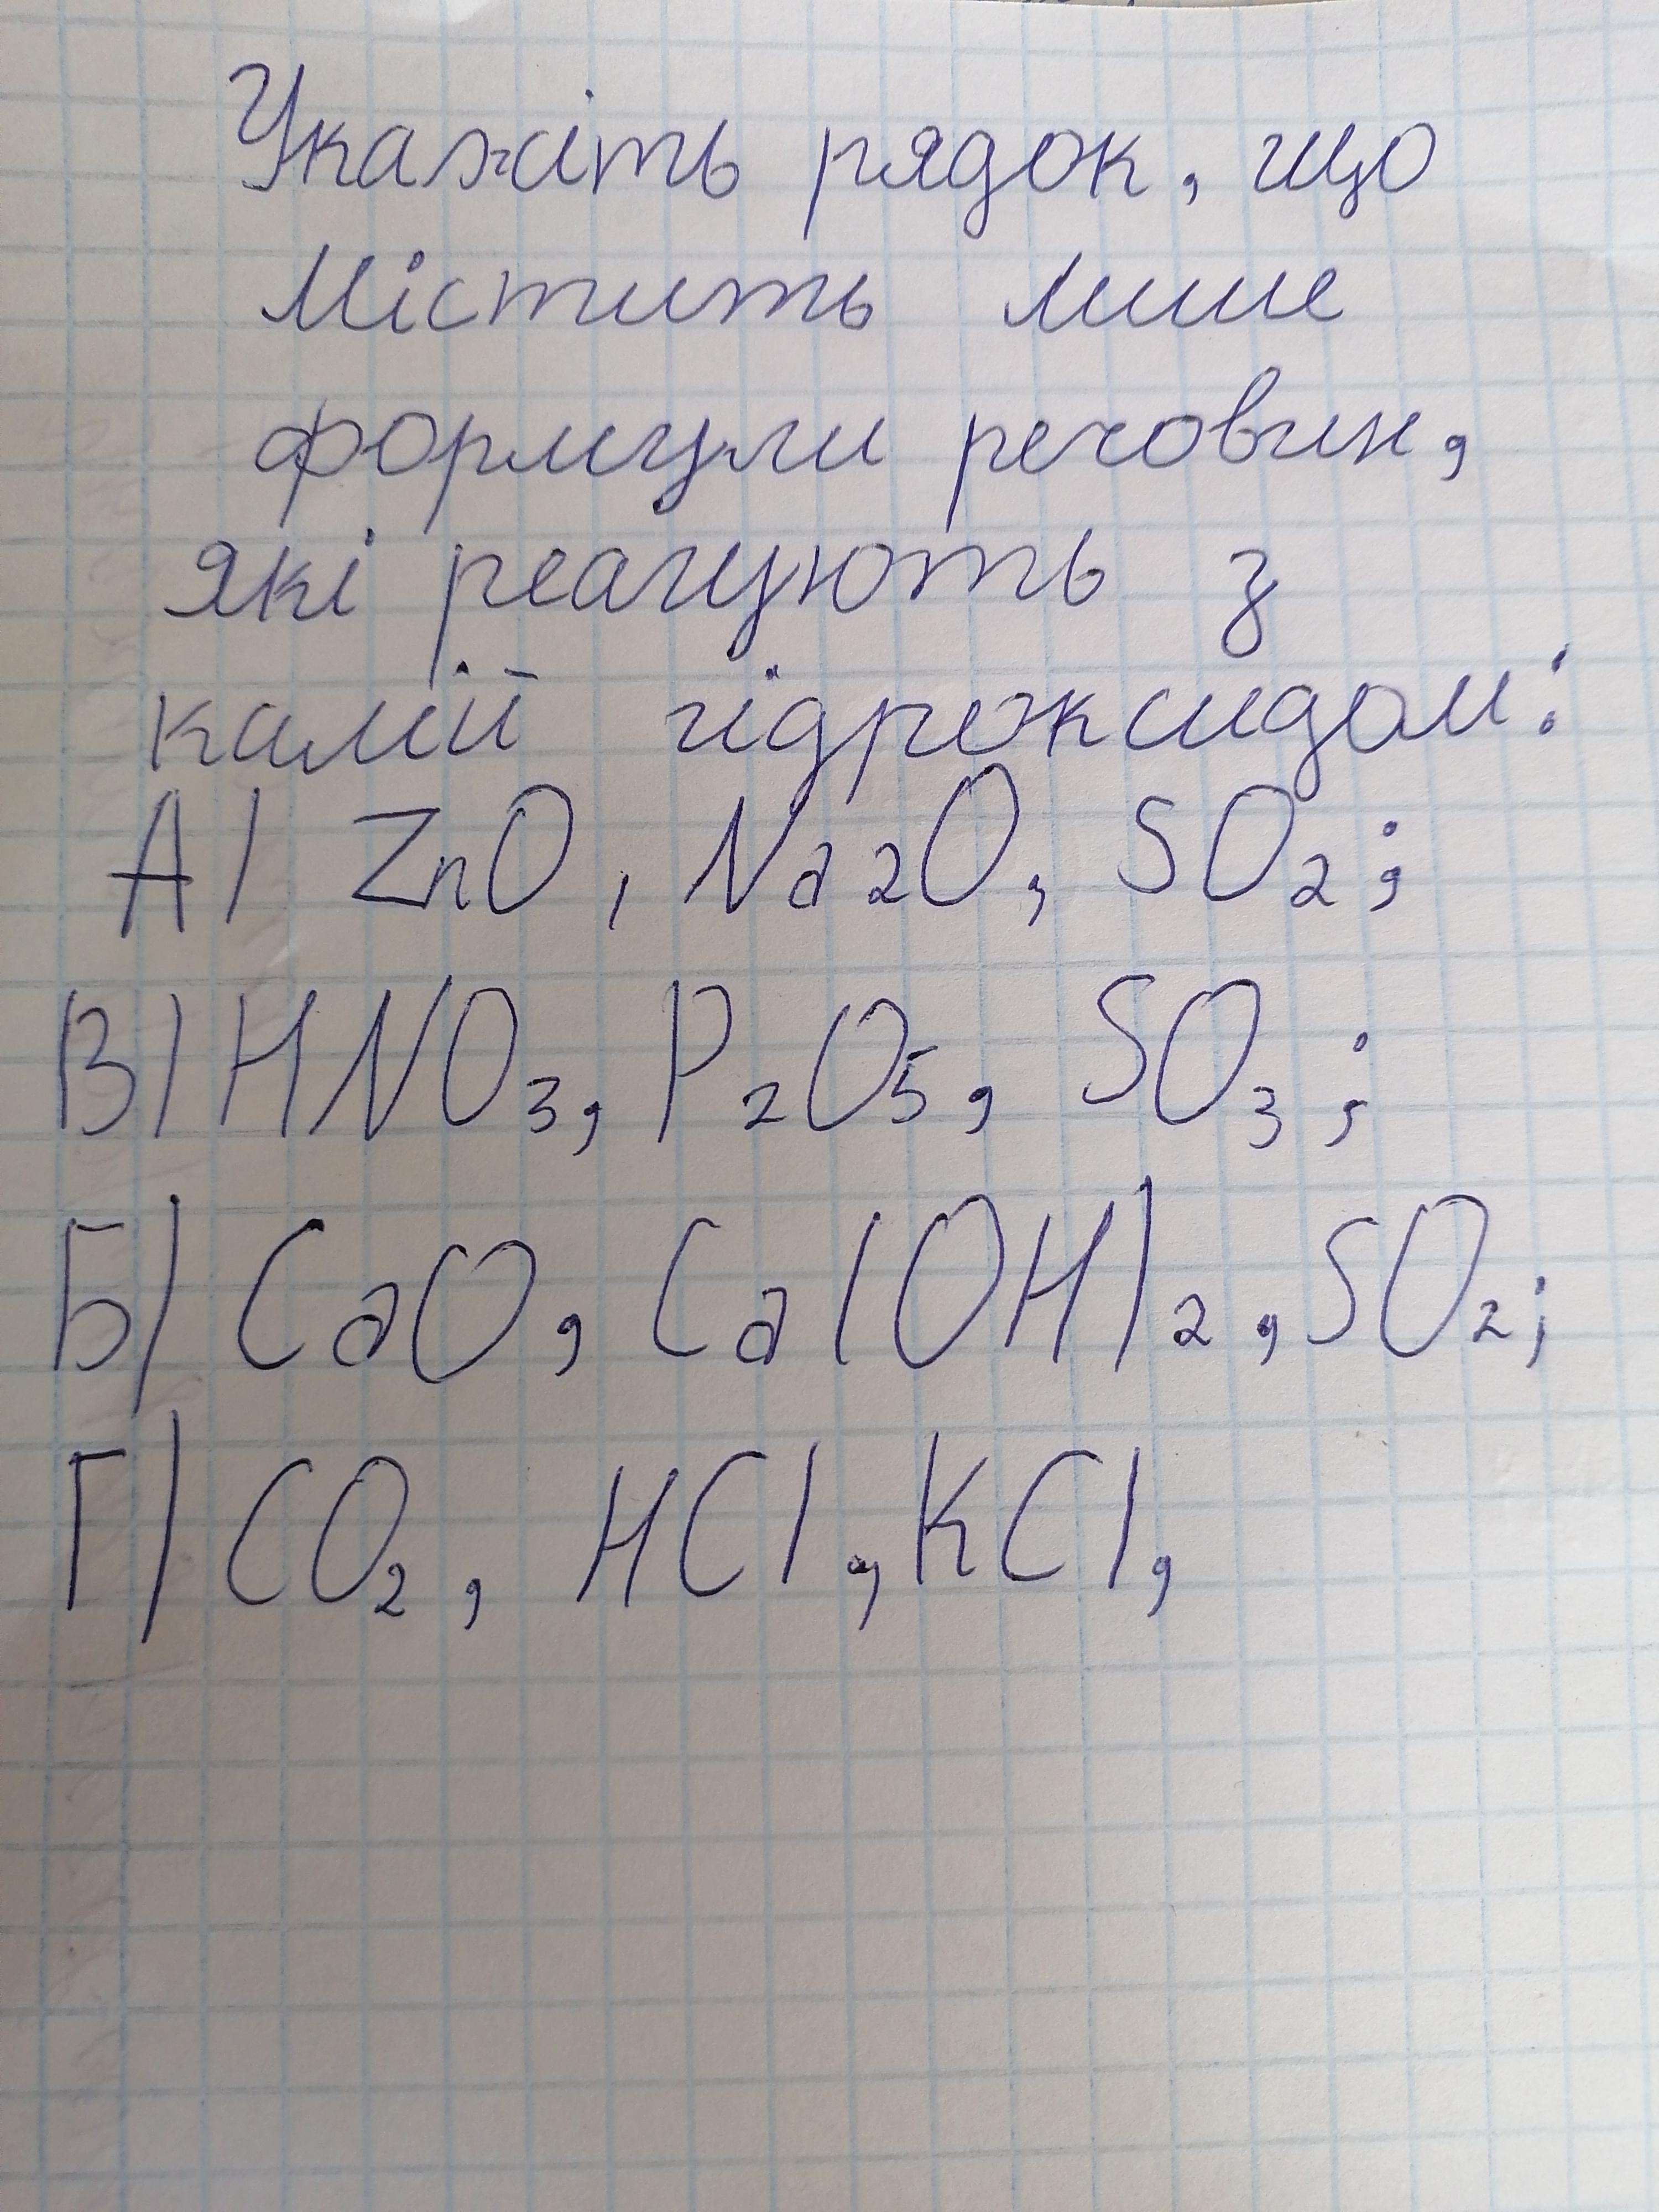 Укажіть рядок, що
містить лише
формули речовин,
які реагують з
калій гідроксидом:
А) ZnO, Na2O, SO2;
В) HNO3, P2O5, SO3;
Б) CaO, Ca(OH)2, SO2;
Г) CO2, HCl, KCl,